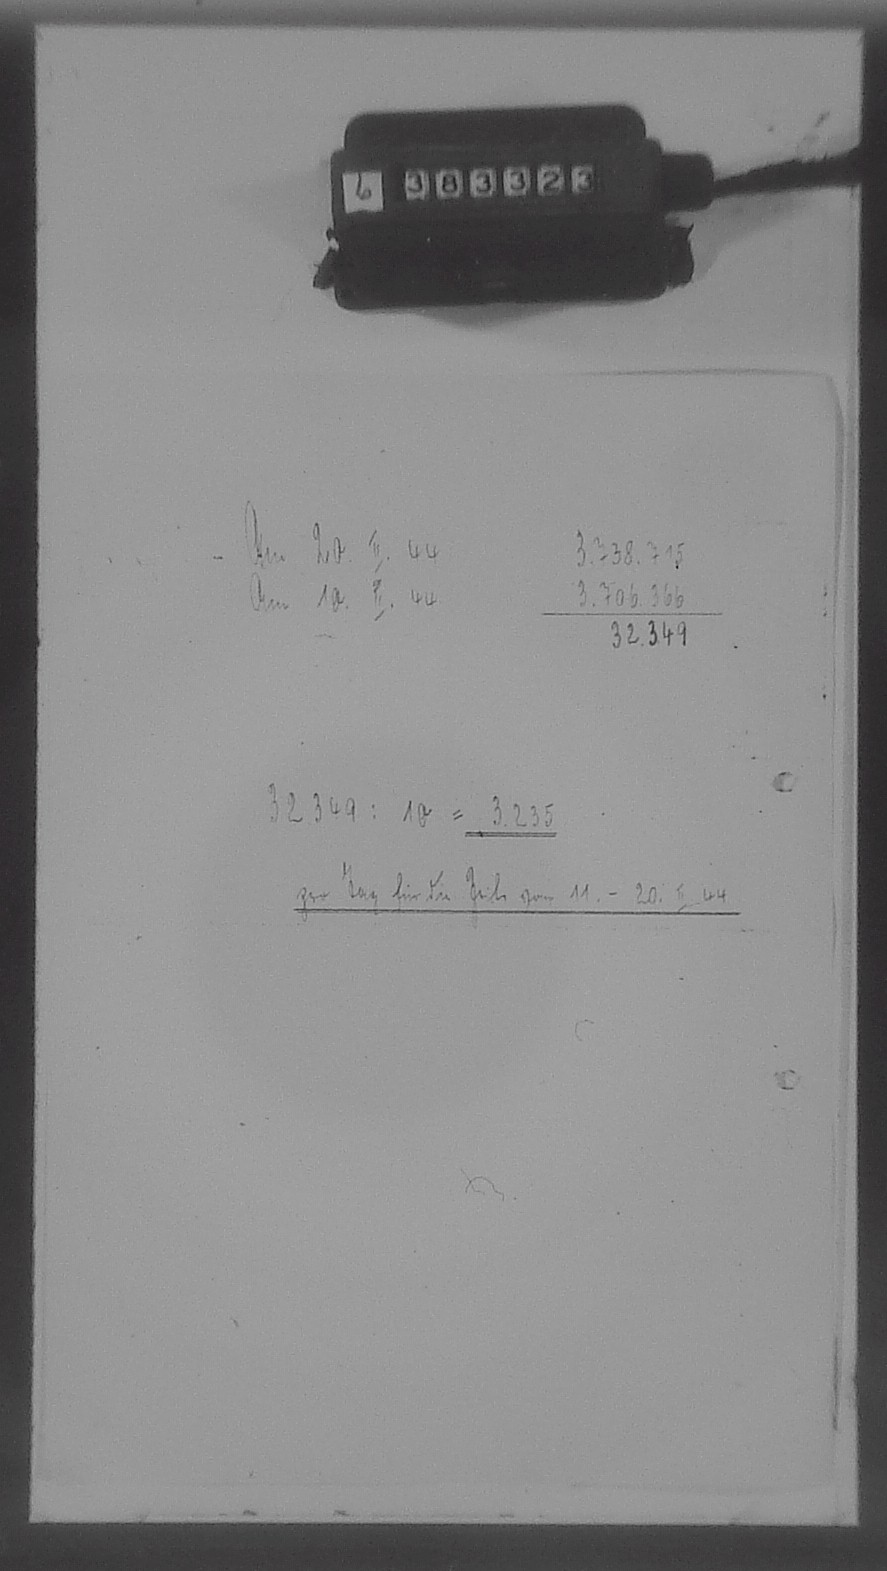 6 383323
- Am 20. II. 44 3.738.715
Am 10. II. 44 3.706.366
32.349
32349 : 10 = 3.235
pro Tag für die Zeit vom 11. - 20. II. 44